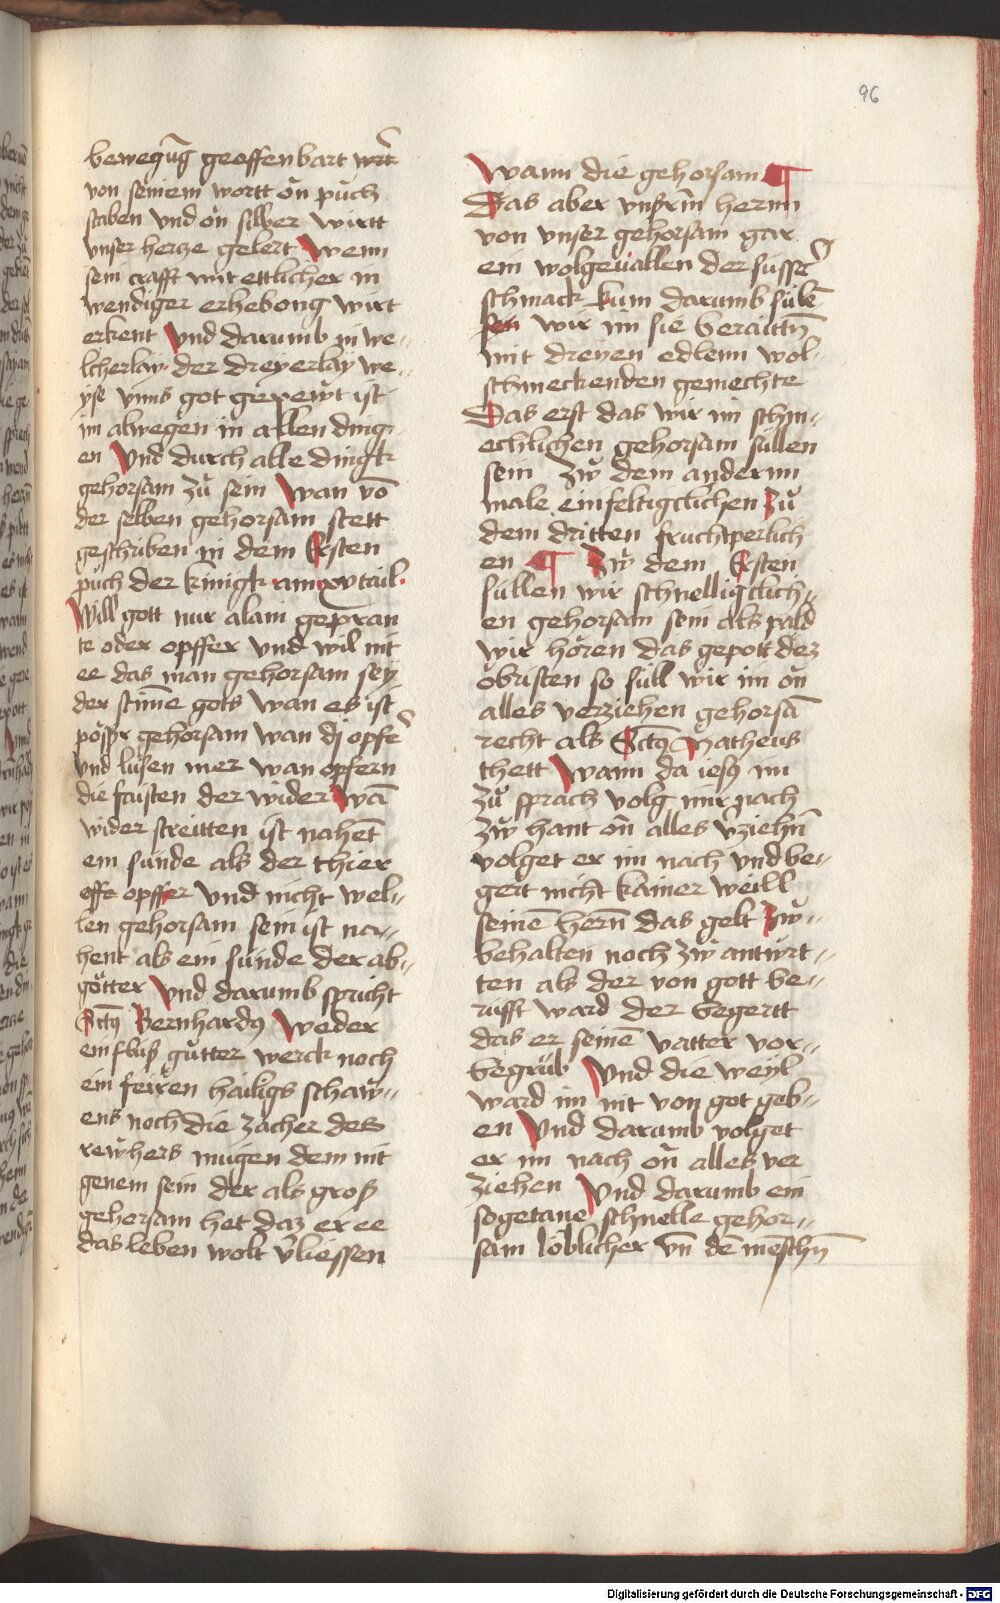 96
bewegūg geoffenbart wirt
von seinem wortt on puch
staben vnd on silber wirtt
vnser hercze gelert Wenn
sein crafft mit ettlicher in
wendiger erhebong wirt
erkent Vnd darumb in we
lcherlay der dreyerlay we
yse vnns got gepewt ist
im abwegen in allen ding
en Vnd durch alle dingk
gehorsam zu sein Wan vō
der selben gehorsam stett
geschriben in dem Ersten
puch der kinigk am xv tail
Will gott nur alain gepran
te oder opffer vnd wil nit
ee das man gehorsam sey
der stīme gots wan es ist
pösser gehorsam wan dj opfer
vnd lusen mer wan opfern
die faisten der wider Wā
wider streitten ist nahēt
ein sunde als der thier
opffer vnd nicht wel
len gehorsam sein ist na
hent als ein sunde der ab
götter Vnd darumb spricht
Sctus Bernhardus Weder
ein fluß gutter werck noch
ein feiren hailigs schaw
ens noch die zacher des
rewhers mugen dem nit
genem sein der als groß
gehorsam het daz er ee
das leben wolt vliessen
Wann die gehorsam ¶
Das aber vnsrm herrn
von vnser gehorsam gar
ein wolgeuallen der susser
schmack kum darumb sullē
wir im sie beraittn
mit dreyen edlenn wol
schmeckenden gemechte
Das erst das wir im schm
echlichen gehorsam sullen
sein Zw dem andernn
male einfeltigclichen Zu
dem dritten fruchtperlich
en ¶ Zw dem Ersten
sullen wir schnelligclich
en gehorsam sein als pald
wir hören das gepott dez
obristen so sull wir im on
alles verziehen gehorsā
recht als Sctus Matheus
thett Wann da iesus im
zu sprach volg mir nach
zw hant on alles vziehn
volget er im nach vnd be
gert nicht kainer weill
seinē hern das gelt Zw
behalten noch zw antwurt
ten als der von gott be
rufft ward der begertt
das er seinē vatter vor
begrub Vnd die weyl
ward im nit von got geb
en Vnd darumb volget
er im nach on alles ver
ziehen Vnd darumb ein
sogetane schnelle gehor
sam löblicher vn dē mēschn
Digitalisierung gefördert durch die Deutsche Forschungsgemeinschaft - DFG